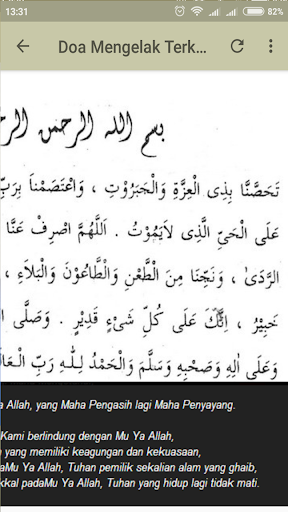 13:31
82%
Doa Mengelak Terk...
بسم الله الرحمن
تَحَصَّنَّا بِذِى الْعِزَّةِ وَالْجَبَرُوْتِ ، وَاعْتَصَمْنَا بِرَبِّ
عَلَى الْحَيِّ الَّذِى لَايَمُوْتُ . اَللَّهُمَّ اصْرِفْ عَنَّا
الرَّدَىٰ ، وَنَجِّنَا مِنَ الطَّعْنِ وَالطَّاعُوْنِ وَالْبَلَاءِ ،
خَبِيْرٌ ، اِنَّكَ عَلَى كُلِّ شَيْءٍ قَدِيْرٌ . وَصَلَّى
وَعَلَى اٰلِهِ وَصَحْبِهِ وَسَلَّمَ وَالْحَمْدُ لِلّٰهِ رَبِّ
a Allah, yang Maha Pengasih lagi Maha Penyayang.
Kami berlindung dengan Mu Ya Allah,
yang memiliki keagungan dan kekuasaan,
aMu Ya Allah, Tuhan pemilik sekalian alam yang ghaib,
kkal padaMu Ya Allah, Tuhan yang hidup lagi tidak mati.